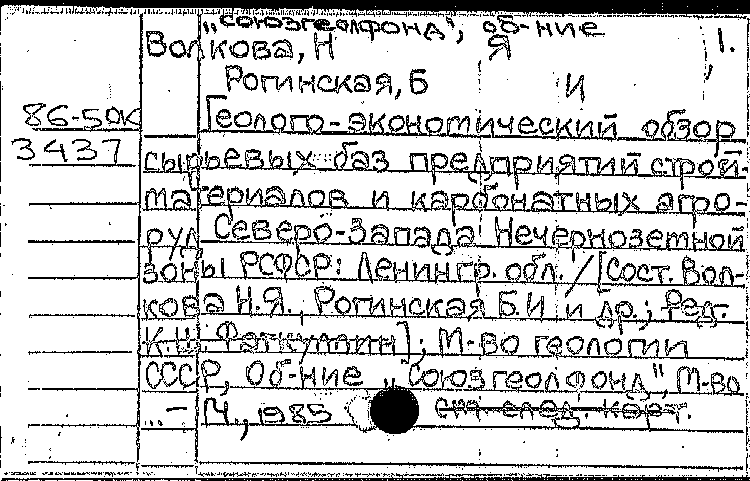 „Союзгеолфонд", об-ние
Волкова, Н Я 1.
Рогинская, Б И
86-50К Геолого-экономический обзор
3437 сырьевых баз предприятий строй-
материалов и карбонатных агро-
руд Северо-Запада Нечерноземной
зоны РСФСР: Ленингр. обл. / [Сост. Вол-
кова Н.Я., Рогинская Б.И и др.; Ред.
К.Ш. Фаткуллин]; М-во геологии
СССР, Об-ние „Союзгеолфонд", М-во
...- М., 1985 см. след. карт.